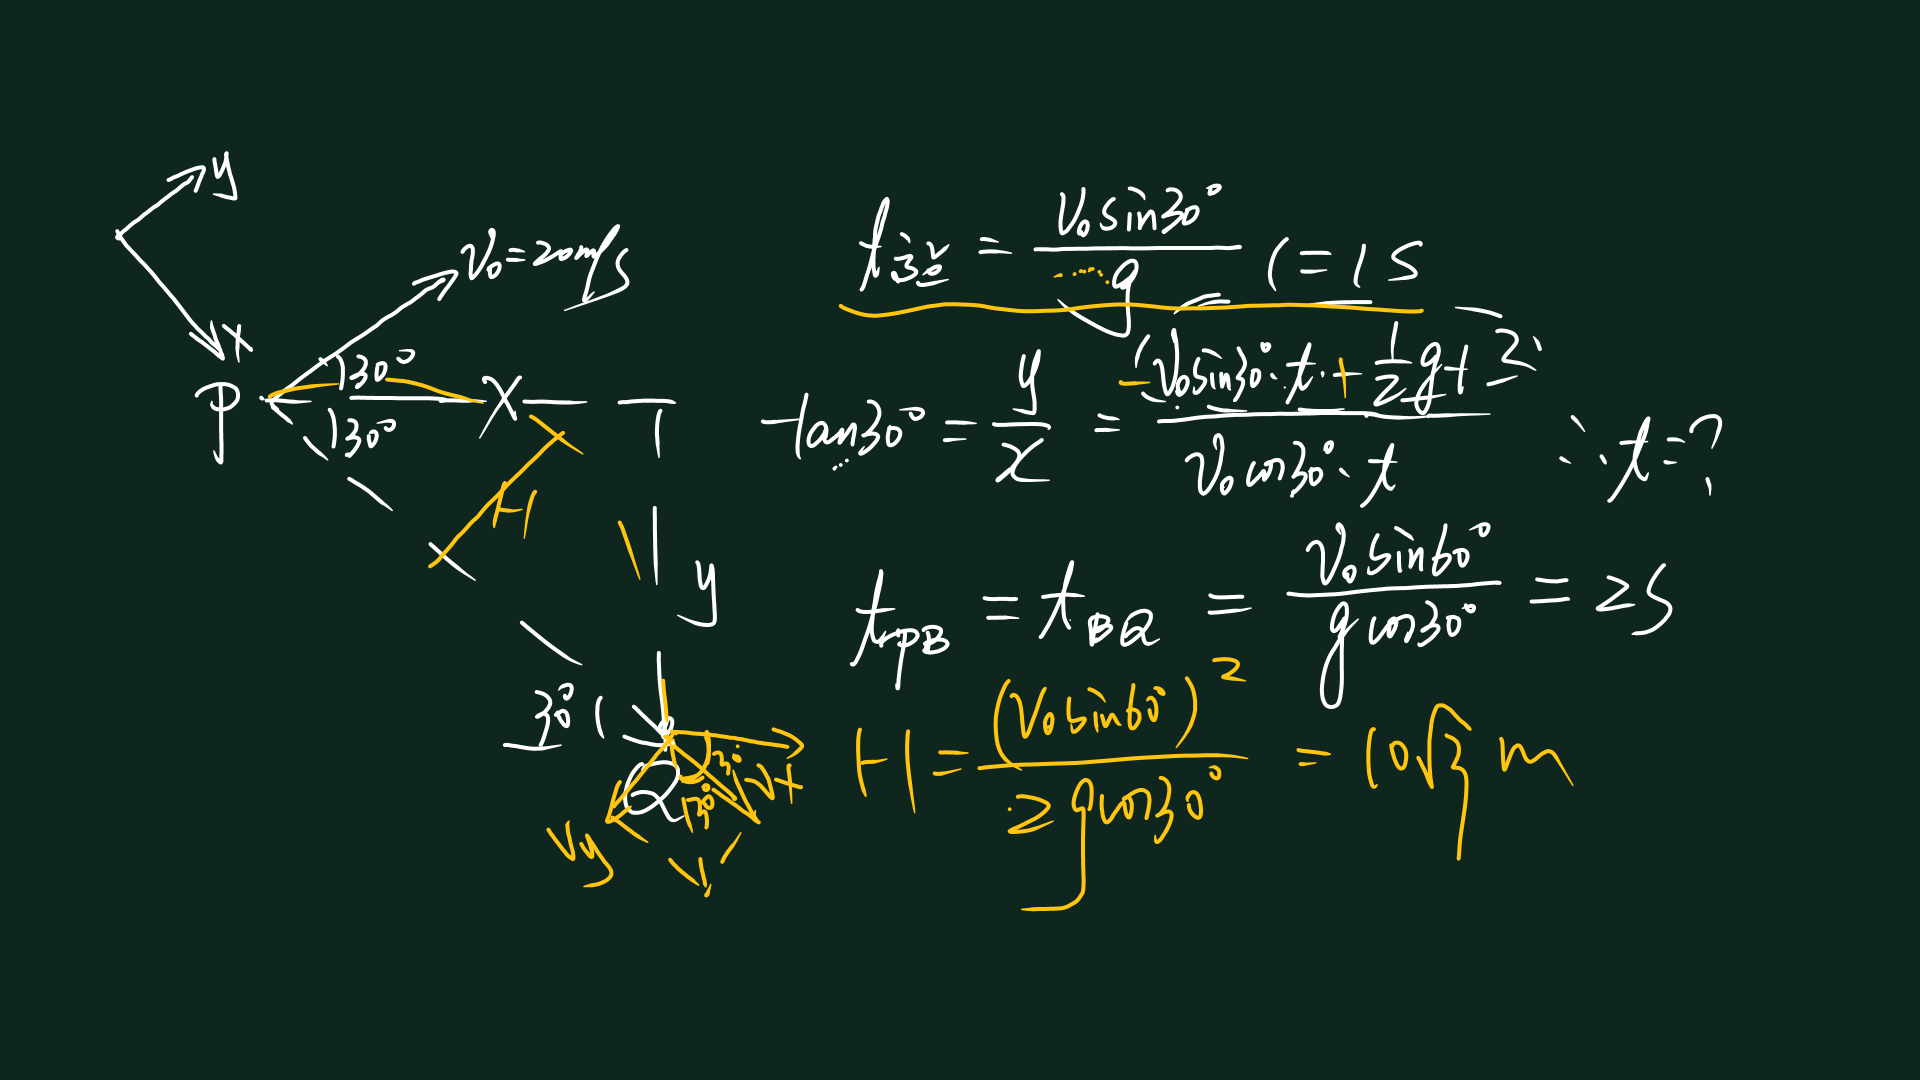 y
x
P
V₀=20m/s
30°
30°
x
H
y
30°
Q
30°
30°
Vx
Vy
V
t高 = V₀sin30° / g (= 1s
tan30° = y / x = (-V₀sin30°·t + ½gt²) / (V₀cos30°·t) ∴ t=?
tPB = tBQ = V₀sin60° / gcos30° = 2s
H = (V₀sin60°)² / 2gcos30° = 10√3 m